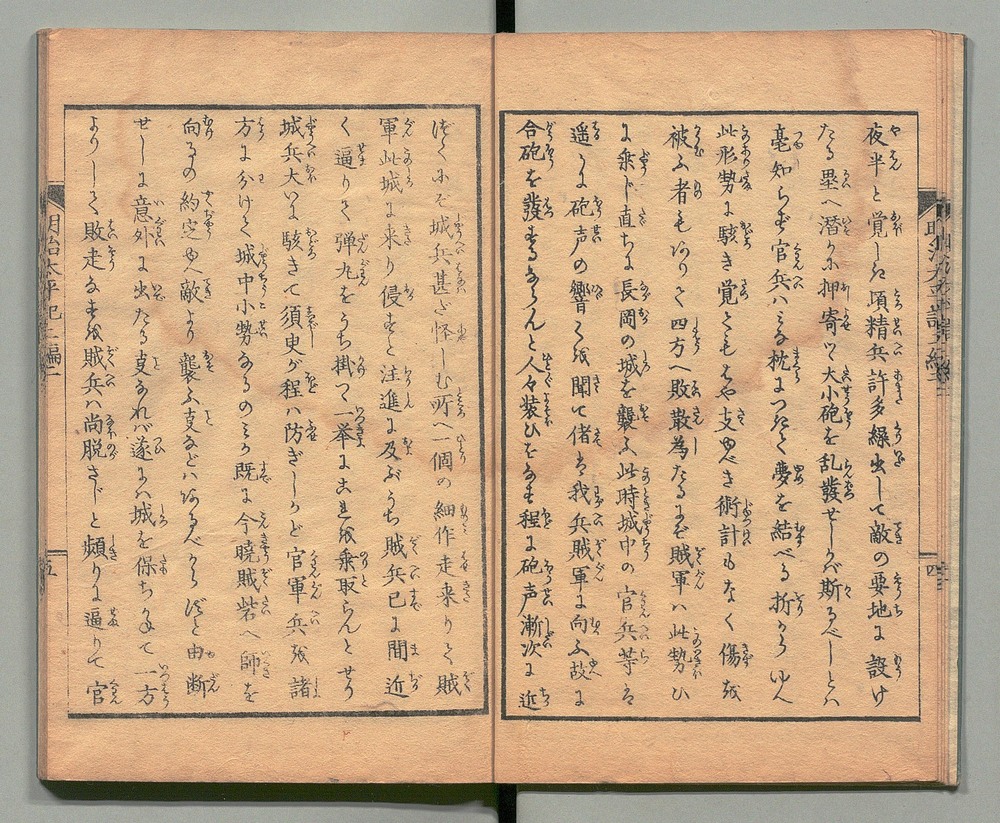 夜半と覚しき頃精兵許多繰出して敵の要地に設け
たる塁へ潜かに押寄せつゝ大小砲を乱發せしかバ斯るべしとハ
毫知らず官兵ハミな枕につきて夢を結べる折から ゆへ
此形勢に駭き覚くともはや支ゆべき術計もなく傷を
被ふ者もありて四方へ敗散為たるにぞ賊軍ハ此勢ひ
に乗じ直ちに長岡の城を襲ふ此時城中の官兵等は
遥かに砲声の響くを聞て偖は我兵賊軍に向ふ故に
合砲を發するならんと人々装ひをなす程に砲声漸次に近
づくにぞ城兵甚だ怪しむ所へ一個の細作走来りて賊
軍此城に来り侵すと注進に及ぶうち賊兵已に間近
く逼りて弾丸をうち掛つゝ一挙に是を乗取らんとせり
城兵大いに駭きて須臾が程ハ防ぎしかど官軍兵を諸
方に分けて城中小勢なるのミか既に今暁賊砦へ師を
向るの約定ゆへ敵より襲ふ事などハあるべからずと由断
せしに意外に出たる事なれバ遂にハ城を保ちかねて一方
よりして敗走なすを賊兵ハ尚脱さじと頻りに逼りて官
明治太平記二編二
五
四